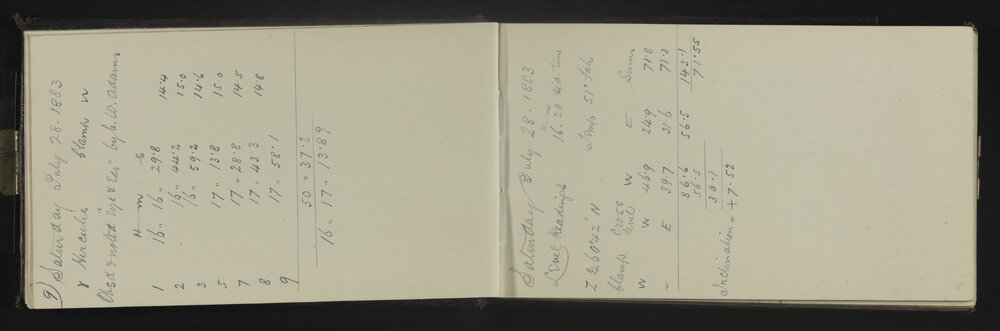 9) Saturday July 28. 1883
γ Herculis Clamp W
Obsd & noted "Eye & Ear" by C. W. Adams
H m s
1 16 " 16 " 29.8 14.4
2 16 " 44.2 15.0
3 16 " 59.2 14.6
5 17 " 13.8 15.0
7 17 " 28.8 14.5
8 17 " 43.3 14.8
9 17 " 58.1
50 " 37.2
16 " 17 " 13.89
Saturday July 28. 1883
Level Readings 16. 20 sid. time
Z. D. 60° 42' N Temp 51° Fah
Clamps Cross level W E Sums
W W 46.9 24.9 71.8
" E 39.7 31.6 71.3
86.6 56.5 143.1
56.5 71.55
30.1
Inclination = + 7.52